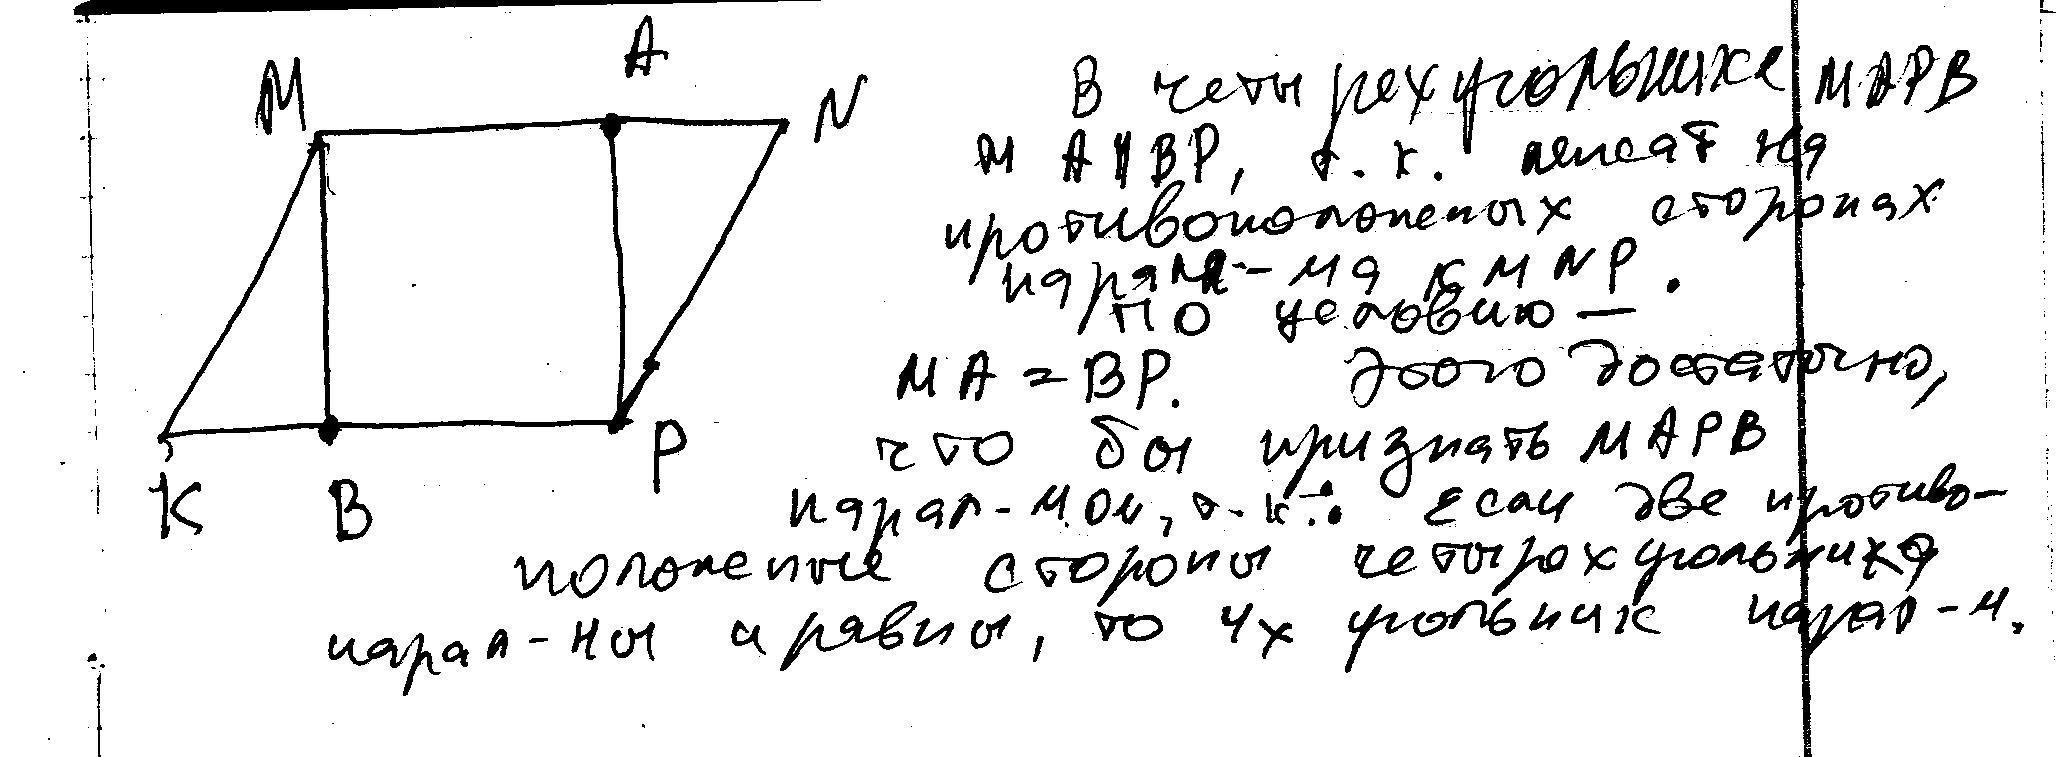 M
A
N
K
B
P
В четырехугольнике MAPB
MA ∥ BP, т.к. лежат на
противоположеных сторонах
парал-ма KMNP.
По условию —
MA = BP. Этого достаточно,
что бы признать MAPB
парал-мом, т.к.: Если две противо-
положеные стороны четырехугольника
парал-ны и равны, то 4х угольник парал-м.